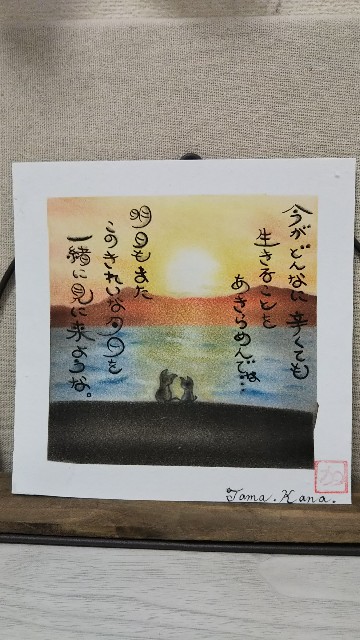 今がどんなに辛くても
生きることを
あきらめんでは…
明日もまた
このきれいな夕日を
一緒に見に来ような。
Tama.Kana.